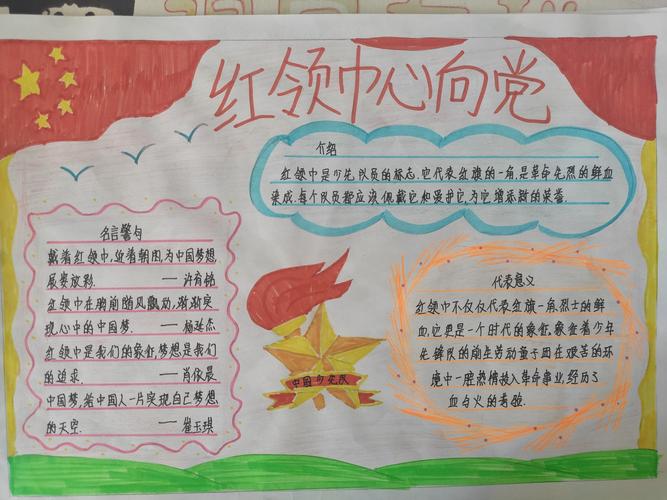 红领巾心向党
介绍
红领巾是少先队员的标志.它代表红旗的一角,是革命先烈的鲜血
染成.每个队员都应该佩戴它和爱护它,为它增添新的荣誉.
名言警句
戴着红领巾,迎着朝阳,为中国梦想,
展姿放彩. ——许育铭
红领巾在胸前随风飘动,渐渐实
现心中的中国梦. ——杨延杰
红领巾是我们的象征,梦想是我们
的追求. ——肖依晨
中国梦,给中国人一片实现自己梦想
的天空. ——崔玉琪
中国少先队
代表意义
红领巾不仅仅代表红旗一角,烈士的鲜
血,它更是一个时代的象征,象征着少年
先锋队的前生劳动童子团在艰苦的环
境中一腔热情投入革命事业,经历了
血与火的考验.